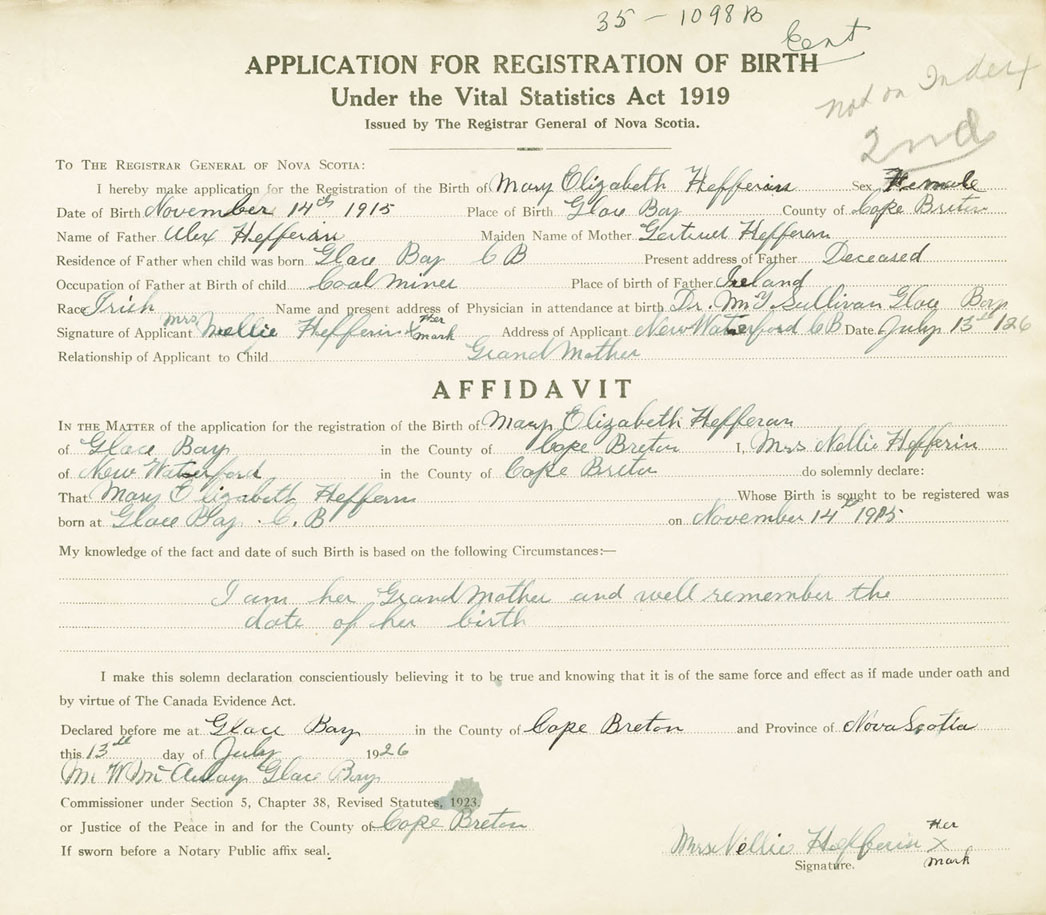 35 - 1098B
Cert
APPLICATION FOR REGISTRATION OF BIRTH
Under the Vital Statistics Act 1919
not on Index
Issued by The Registrar General of Nova Scotia.
2nd
To The Registrar General of Nova Scotia:
I hereby make application for the Registration of the Birth of Mary Elizabeth Hefferan Sex Female
Date of Birth November 14th 1915 Place of Birth Glace Bay County of Cape Breton
Name of Father Alex Hefferan Maiden Name of Mother Hefferan
Residence of Father when child was born Glace Bay C B Present address of Father Deceased
Occupation of Father at Birth of child Coal Miner Place of birth of Father Ireland
Race Irish Name and present address of Physician in attendance at birth Dr. Sullivan Glace Bay
Signature of Applicant Mrs Nellie Hefferin Her X mark Address of Applicant New Waterford CB Date July 13th 126
Relationship of Applicant to Child Grand Mother
AFFIDAVIT
In the Matter of the application for the registration of the Birth of Mary Elizabeth Hefferan
of Glace Bay in the County of Cape Breton I, Mrs Nellie Hefferin
of New Waterford in the County of Cape Breton do solemnly declare:
That Mary Elizabeth Heffern Whose Birth is sought to be registered was
born at Glace Bay C. B on November 14th 1915
My knowledge of the fact and date of such Birth is based on the following Circumstances:—
I am her Grand Mother and well remember the
date of her birth
I make this solemn declaration conscientiously believing it to be true and knowing that it is of the same force and effect as if made under oath and
by virtue of The Canada Evidence Act.
Declared before me at Glace Bay in the County of Cape Breton and Province of Nova Scotia
this 13th day of July 1926
M. W McAulay Glace Bay
Commissioner under Section 5, Chapter 38, Revised Statutes, 1923.
or Justice of the Peace in and for the County of Cape Breton
If sworn before a Notary Public affix seal.
Mrs Nellie Hefferin Her X mark
Signature.